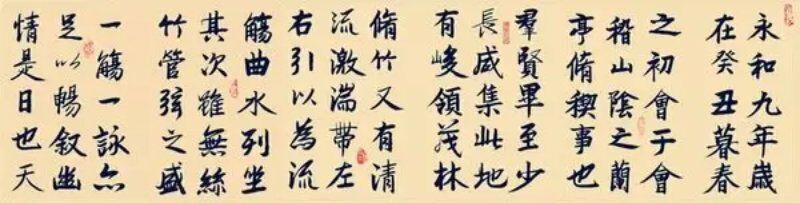 永和九年歳
在癸丑暮春
之初會于會
稽山陰之蘭
亭脩稧事也
羣賢畢至少
長咸集此地
有峻領茂林
脩竹又有清
流激湍帶左
右引以為流
觴曲水列坐
其次雖無絲
竹管弦之盛
一觴一詠亦
足以暢叙幽
情是日也天